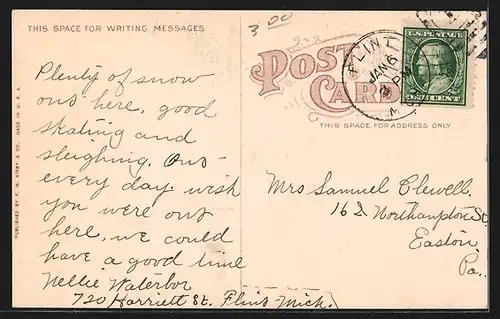 THIS SPACE FOR WRITING MESSAGES
3 00
Plenty of snow
out here, good
skating and
sleighing. Out
every day. wish
you were out
here, we could
have a good time
Nellie Waterbor
720 Harriett St. Flint Mich.
PUBLISHED BY F. N. KIRBY & CO. MADE IN U.S.A.
POST
CARD
THIS SPACE FOR ADDRESS ONLY
FLINT
JAN 6
PM
U.S. POSTAGE
ONE CENT
Mrs Samuel Clewell.
162 Northampton St.
Easton
Pa.